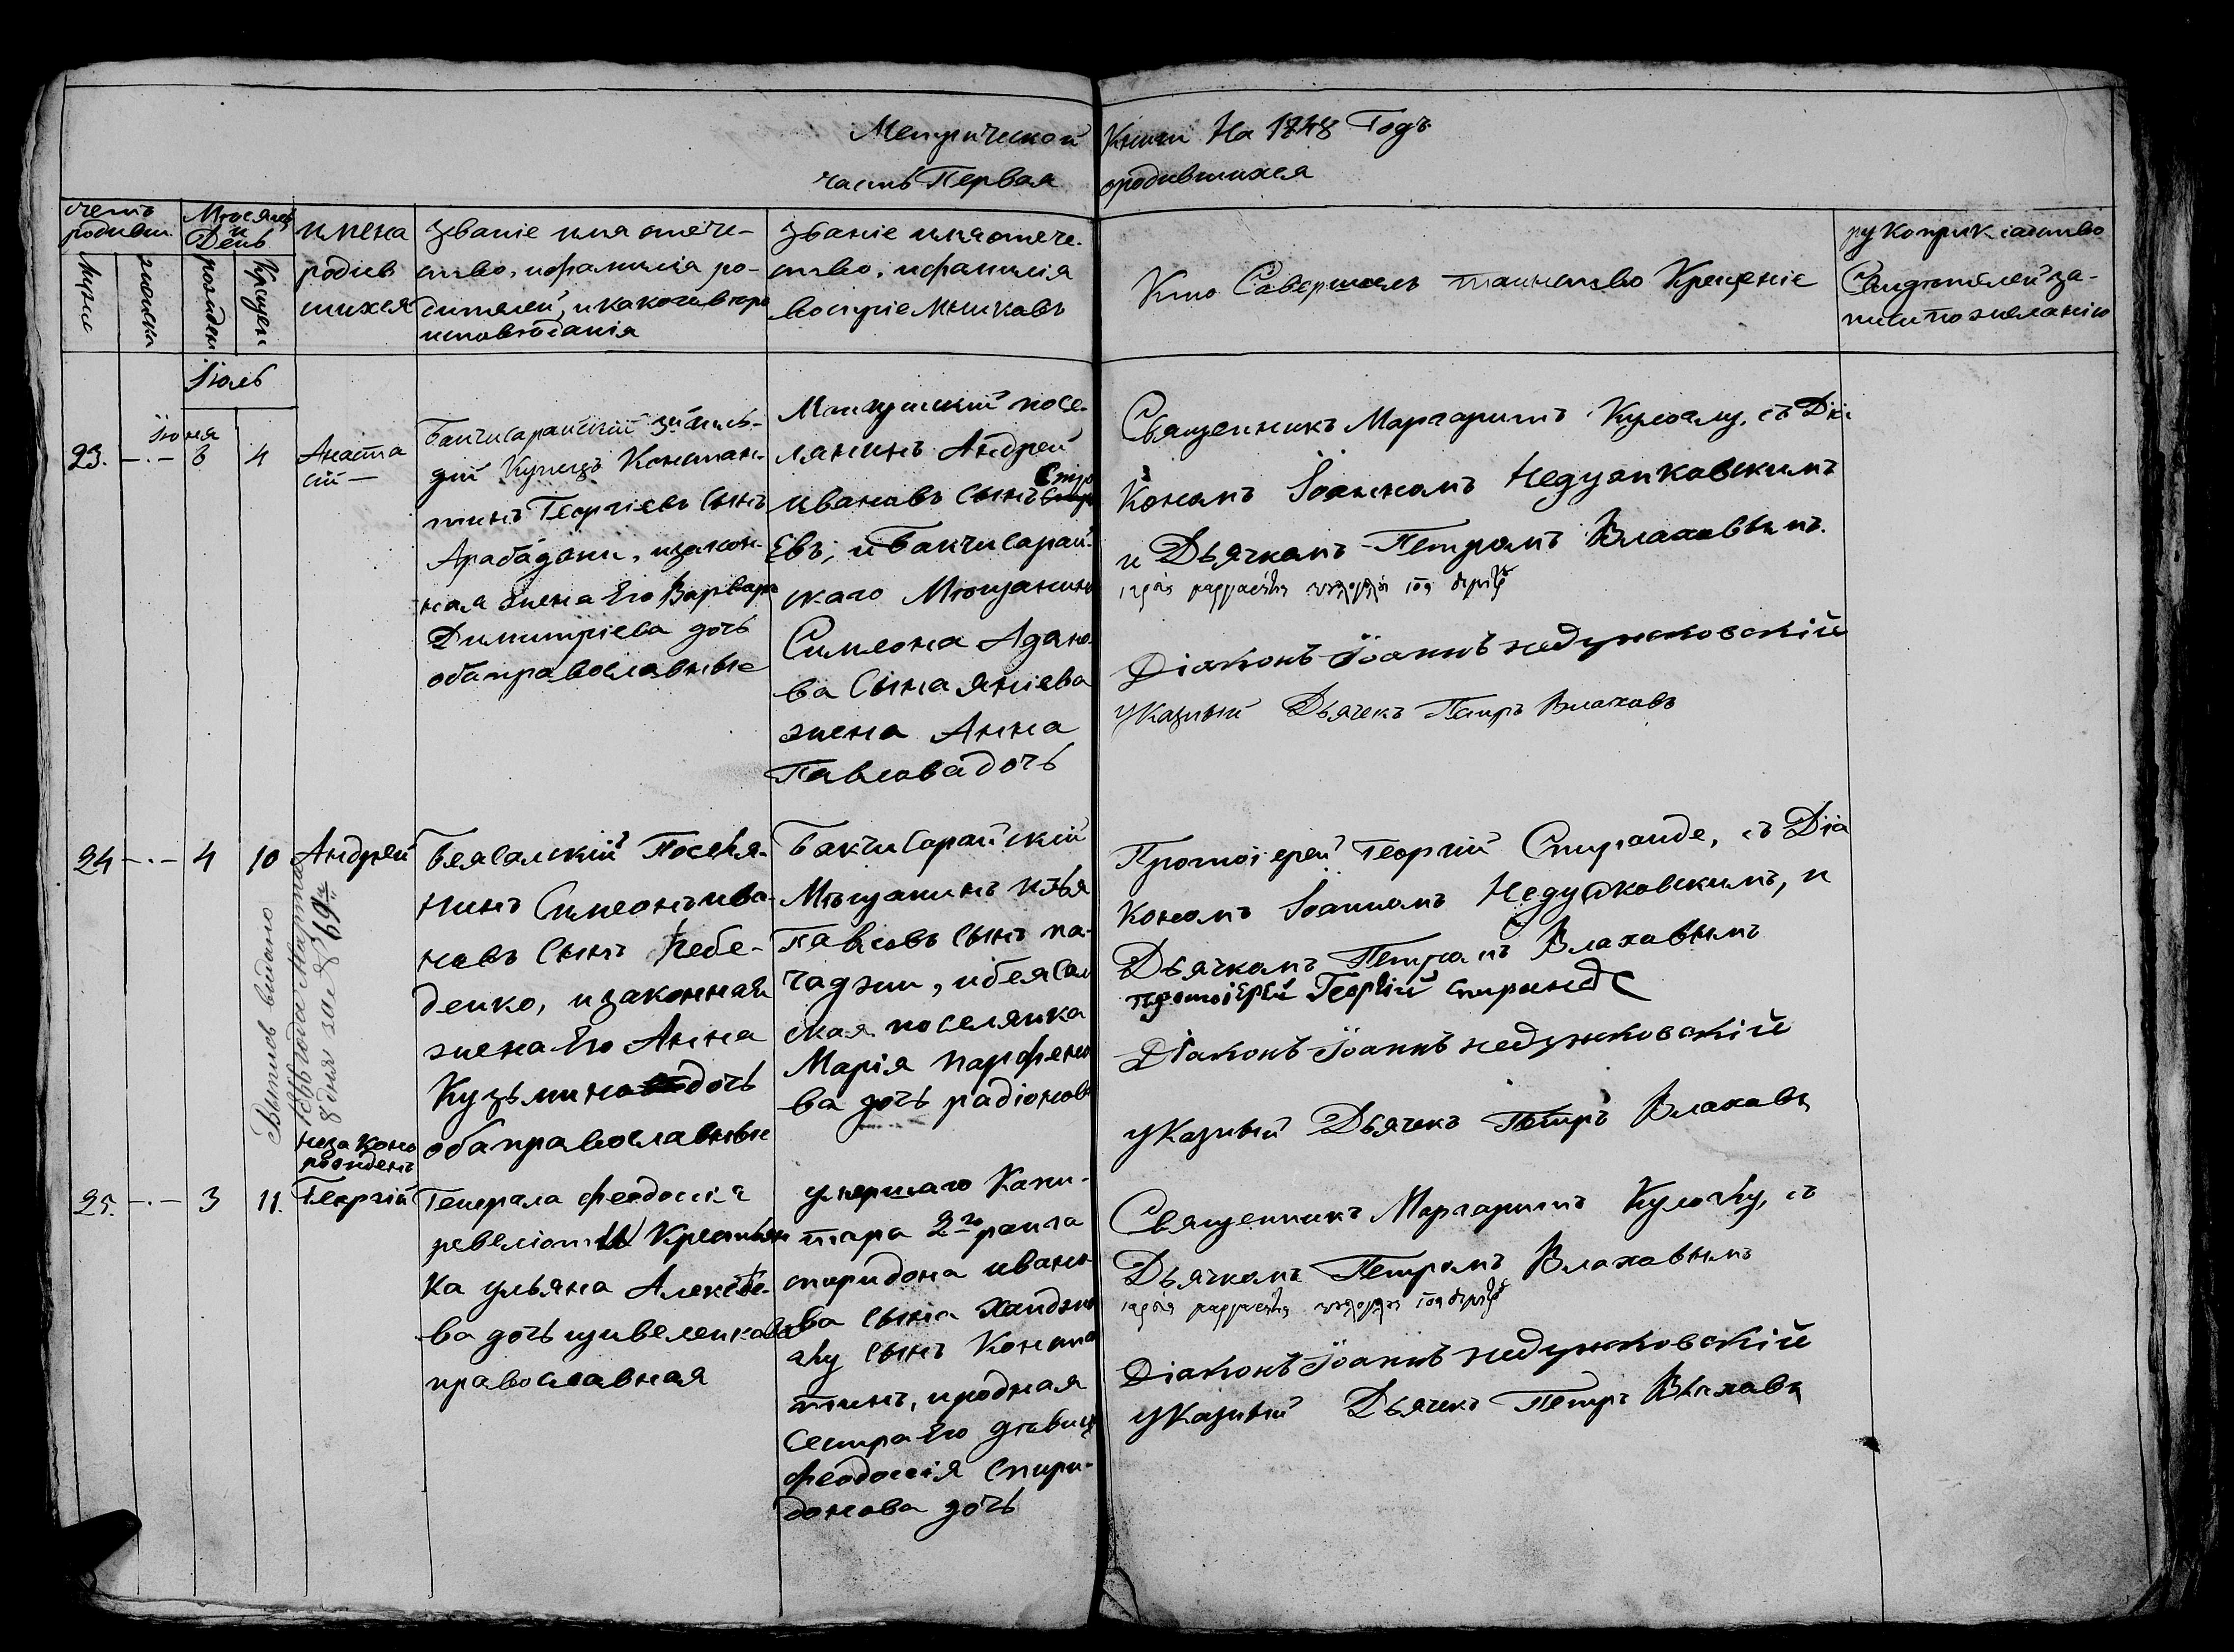 Метрической Книги На 1848 Годъ
часть Первая о родившихся
счетъ родивш.
Мѣсяцъ и День
имена родившихся
мужес
женска
рожден
Крещен
званіе имя отече-
ство, и фамилія ро-
дителей, и какого вѣро
исповѣданія
званіе имя отече-
ство, и фамилія
воспріемниковъ
Кто Совершалъ таинство Крещеніе
рукоприкладство
Свидѣтелей за-
писи по желанію
Іюль
23.
Іюня
8
4
Анаста
сій
Бакчисарайскій
дій Купецъ Констан-
тинъ Георгіевъ Сынъ
Арабаджи, и закон-
ная жена Его Варвара
Димитріева дочь
оба православные
Мангушскій посе-
лянинъ Андрей
ивановъ Сынъ
Евъ, и Бакчисарай-
скаго Мѣщанина
Симеона Адамо-
ва Сына Яніева
жена Анна
Павлова дочь
Священникъ Маргаритъ съ Діа
Кономъ Іоанномъ Недужковскимъ
и Дьячкомъ Петромъ Влаховымъ.
Діаконъ Іоаннъ недужковскій
указный Дьячекъ Петръ Влаховъ
24
4
10
Андрей
Выпись выдано
года Марта
8 дня за № 69
Беясалскій Поселя-
нинъ Симеонъ ива-
новъ Сынъ Лебе-
денко, и законная
жена Его Анна
Кузьмина дочь
оба православные
Бакчисарайскій
Мѣщанинъ Илья
Павловъ Сынъ па-
чаджи, и беясал
ская поселянка
Марія парфено
ва дочь радіонова
Протоіерей Георгій Спиранде, съ Діа
Кономъ Іоанномъ Недужковскимъ, и
Дьячкомъ Петромъ Влаховымъ
протоіерей Георгій спиранде
Діаконъ Іоаннъ недужковскій
указный Дьячекъ Петръ Влаховъ
25.
3
11.
незаконо
рожденъ
Георгій
Генерала феодосія
ревеліоти Крестьян
Ка ульяна Алексѣе-
ва дочь
православная
умершаго Капи-
тара 2го ранга
спиридона ивано-
ва сына
сынъ Констан
тинъ, и родная
Сестра Его дѣвица
феодосія Спири-
донова дочь
Священникъ Маргаритъ съ
Дьячкомъ Петромъ Влаховымъ
Діаконъ Іоаннъ недужковскій
указный Дьячекъ Петръ Влаховъ